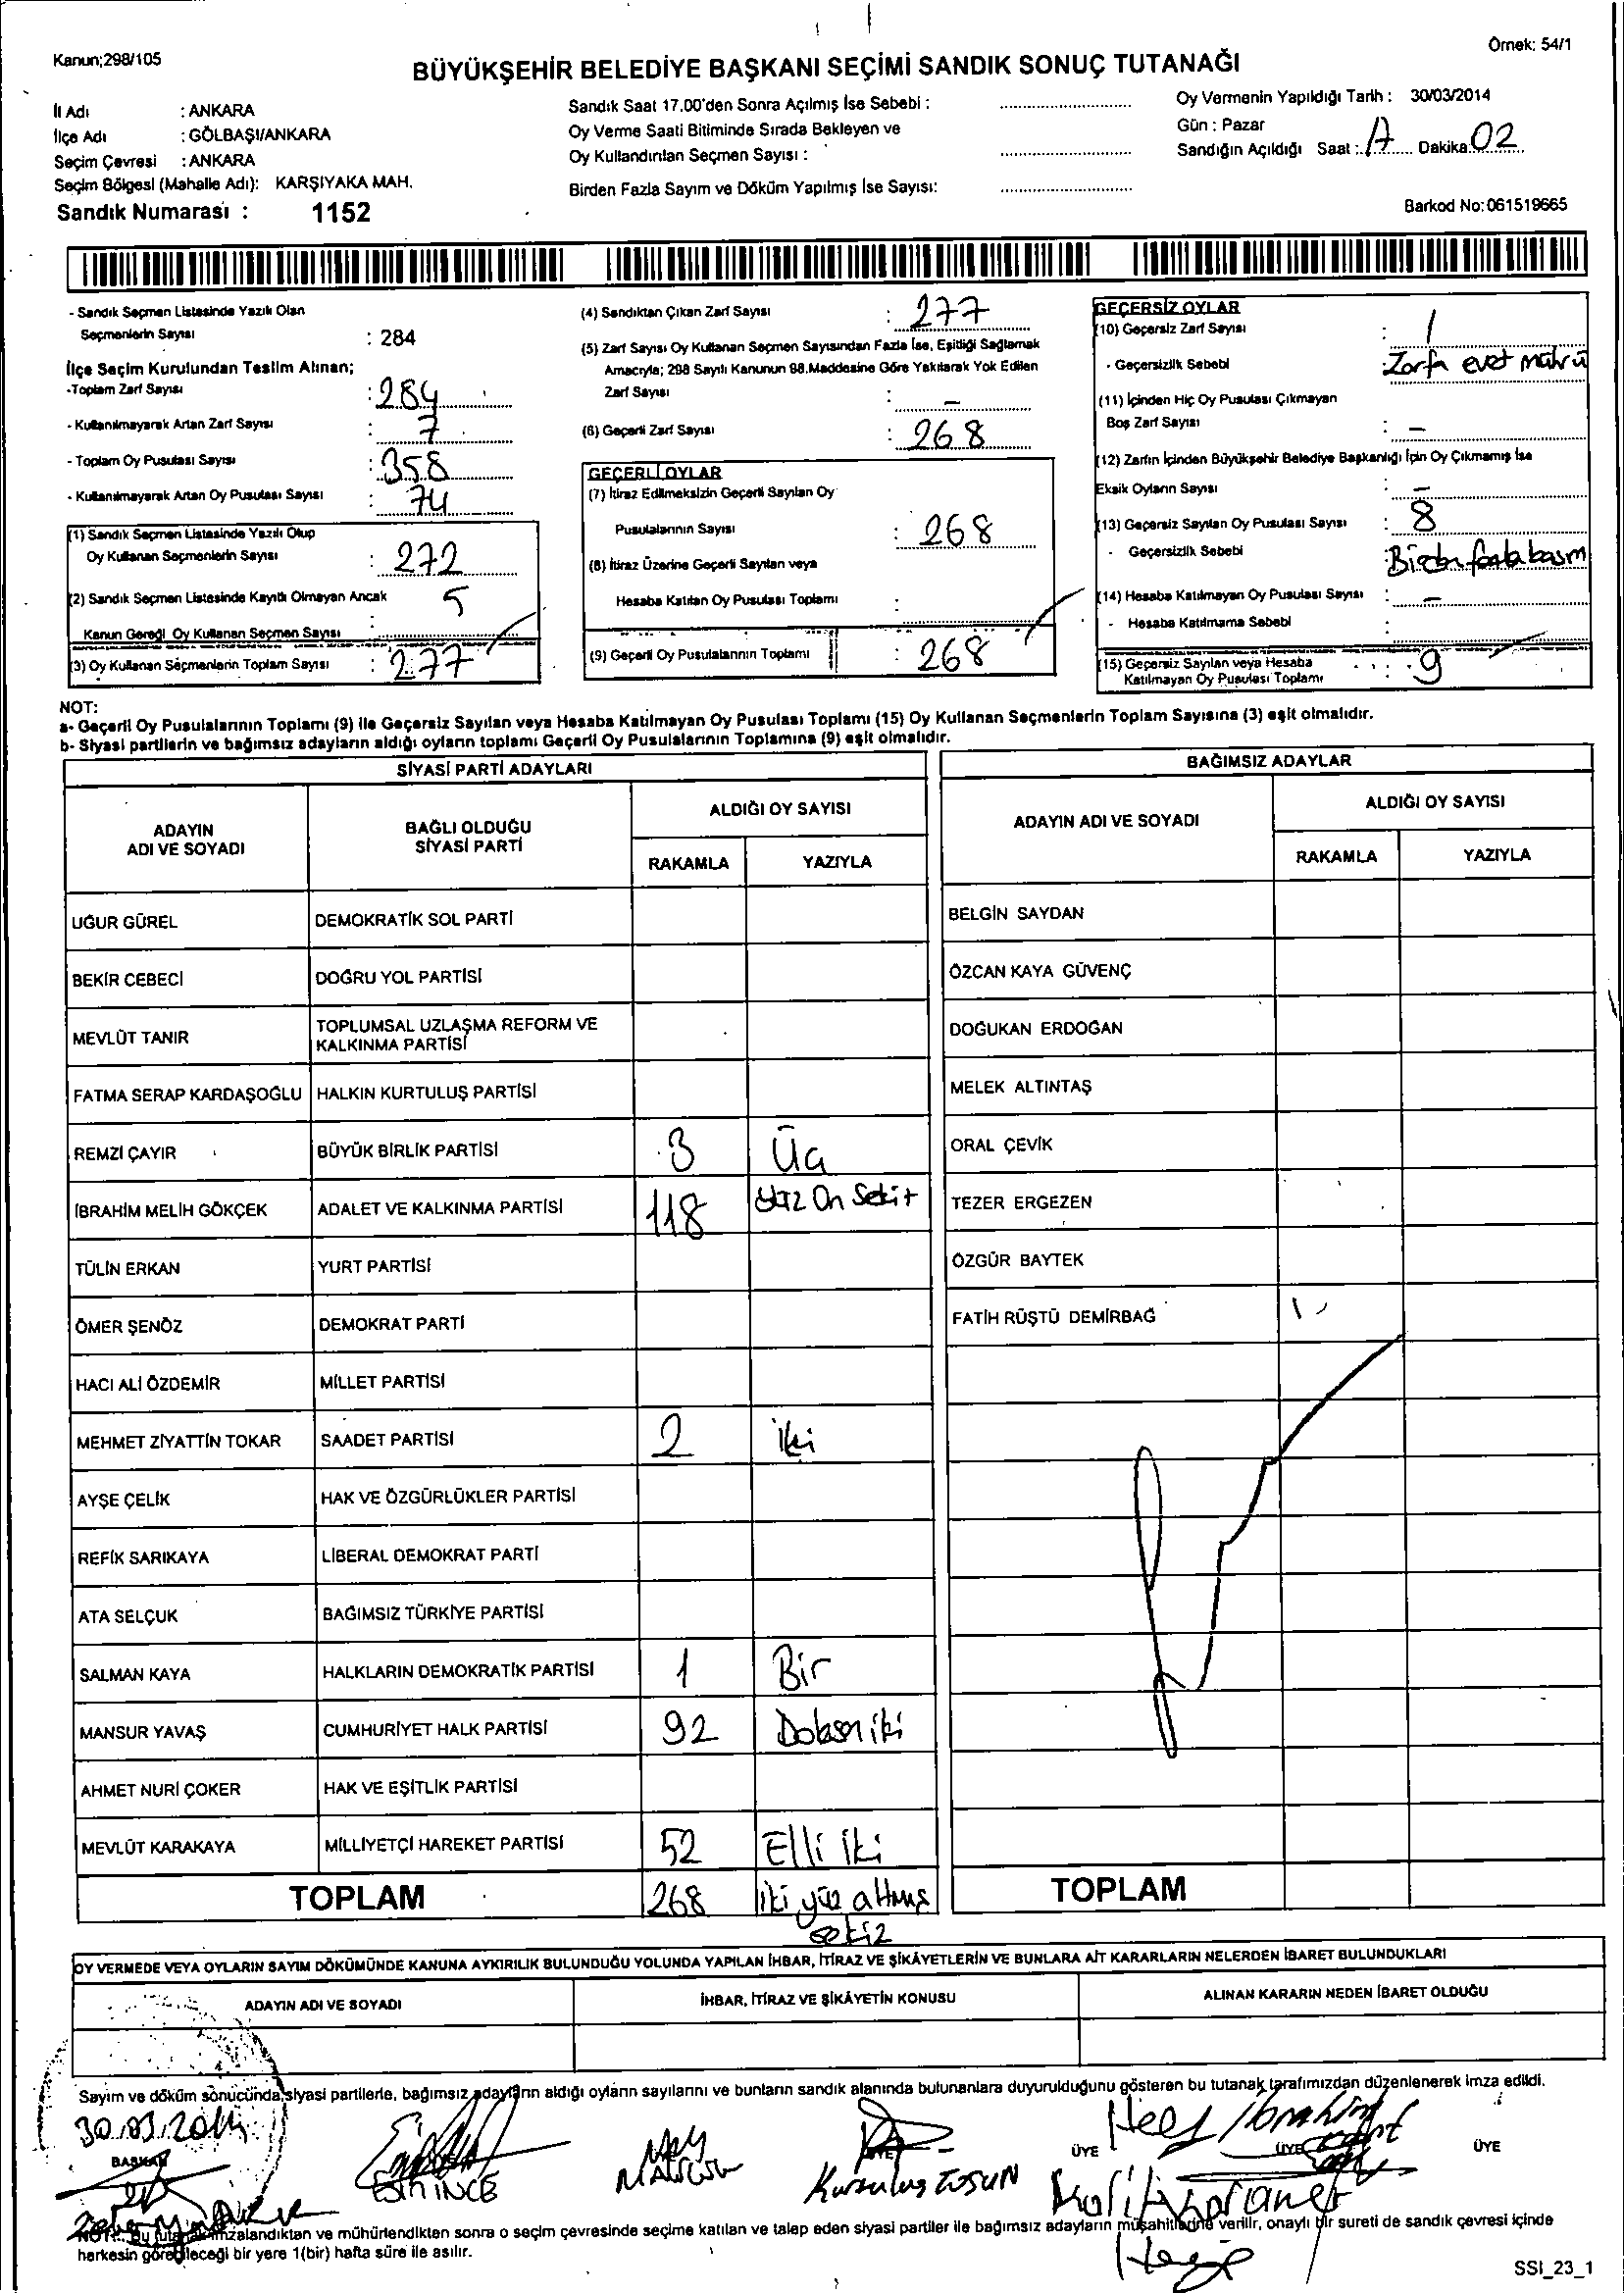 Kanun;298/105
Örnek: 54/1
BÜYÜKŞEHİR BELEDİYE BAŞKANI SEÇİMİ SANDIK SONUÇ TUTANAĞI
İl Adı : ANKARA
İlçe Adı : GÖLBAŞI/ANKARA
Seçim Çevresi : ANKARA
Seçim Bölgesi (Mahalle Adı): KARŞIYAKA MAH.
Sandık Numarası : 1152
Sandık Saat 17.00'den Sonra Açılmış İse Sebebi :
Oy Verme Saati Bitiminde Sırada Bekleyen ve
Oy Kullandırılan Seçmen Sayısı :
Birden Fazla Sayım ve Döküm Yapılmış İse Sayısı:
Oy Vermenin Yapıldığı Tarih : 30/03/2014
Gün : Pazar
Sandığın Açıldığı Saat : 17 Dakika: 02
Barkod No:061519665
- Sandık Seçmen Listesinde Yazılı Olan
Seçmenlerin Sayısı : 284
İlçe Seçim Kurulundan Teslim Alınan;
-Toplam Zarf Sayısı : 284
- Kullanılmayarak Artan Zarf Sayısı : 7
- Toplam Oy Pusulası Sayısı : 358
- Kullanılmayarak Artan Oy Pusulası Sayısı : 74
(1) Sandık Seçmen Listesinde Yazılı Olup
Oy Kullanan Seçmenlerin Sayısı : 272
(2) Sandık Seçmen Listesinde Kayıtlı Olmayan Ancak
Kanun Gereği Oy Kullanan Seçmen Sayısı : 5
(3) Oy Kullanan Seçmenlerin Toplam Sayısı : 277
(4) Sandıktan Çıkan Zarf Sayısı : 277
(5) Zarf Sayısı Oy Kullanan Seçmen Sayısından Fazla İse, Eşitliği Sağlamak
Amacıyla; 298 Sayılı Kanunun 98.Maddesine Göre Yakılarak Yok Edilen
Zarf Sayısı : -
(6) Geçerli Zarf Sayısı : 268
GEÇERLİ OYLAR
(7) İtiraz Edilmeksizin Geçerli Sayılan Oy
Pusulalarının Sayısı : 268
(8) İtiraz Üzerine Geçerli Sayılan veya
Hesaba Katılan Oy Pusulası Toplamı :
(9) Geçerli Oy Pusulalarının Toplamı : 268
GEÇERSİZ OYLAR
(10) Geçersiz Zarf Sayısı : 1
- Geçersizlik Sebebi : Zarfa evet mührü
(11) İçinden Hiç Oy Pusulası Çıkmayan
Boş Zarf Sayısı : -
(12) Zarfın İçinden Büyükşehir Belediye Başkanlığı İçin Oy Çıkmamış İse
Eksik Oyların Sayısı : -
(13) Geçersiz Sayılan Oy Pusulası Sayısı : 8
- Geçersizlik Sebebi : Birden fazla basım
(14) Hesaba Katılmayan Oy Pusulası Sayısı : -
- Hesaba Katılmama Sebebi :
(15) Geçersiz Sayılan veya Hesaba
Katılmayan Oy Pusulası Toplamı : 9
NOT:
a- Geçerli Oy Pusulalarının Toplamı (9) ile Geçersiz Sayılan veya Hesaba Katılmayan Oy Pusulası Toplamı (15) Oy Kullanan Seçmenlerin Toplam Sayısına (3) eşit olmalıdır.
b- Siyasi partilerin ve bağımsız adayların aldığı oyların toplamı Geçerli Oy Pusulalarının Toplamına (9) eşit olmalıdır.
SİYASİ PARTİ ADAYLARI
ADAYIN
ADI VE SOYADI
BAĞLI OLDUĞU
SİYASİ PARTİ
ALDIĞI OY SAYISI
RAKAMLA YAZIYLA
UĞUR GÜREL DEMOKRATİK SOL PARTİ
BEKİR CEBECİ DOĞRU YOL PARTİSİ
MEVLÜT TANIR TOPLUMSAL UZLAŞMA REFORM VE
KALKINMA PARTİSİ
FATMA SERAP KARDAŞOĞLU HALKIN KURTULUŞ PARTİSİ
REMZİ ÇAYIR BÜYÜK BİRLİK PARTİSİ 3 Üç
İBRAHİM MELİH GÖKÇEK ADALET VE KALKINMA PARTİSİ 118 Yüz On Sekiz
TÜLİN ERKAN YURT PARTİSİ
ÖMER ŞENÖZ DEMOKRAT PARTİ
HACI ALİ ÖZDEMİR MİLLET PARTİSİ
MEHMET ZİYATTİN TOKAR SAADET PARTİSİ 2 iki
AYŞE ÇELİK HAK VE ÖZGÜRLÜKLER PARTİSİ
REFİK SARIKAYA LİBERAL DEMOKRAT PARTİ
ATA SELÇUK BAĞIMSIZ TÜRKİYE PARTİSİ
SALMAN KAYA HALKLARIN DEMOKRATİK PARTİSİ 1 Bir
MANSUR YAVAŞ CUMHURİYET HALK PARTİSİ 92 Doksan iki
AHMET NURİ ÇOKER HAK VE EŞİTLİK PARTİSİ
MEVLÜT KARAKAYA MİLLİYETÇİ HAREKET PARTİSİ 52 Elli iki
TOPLAM 268 iki yüz altmış
sekiz
BAĞIMSIZ ADAYLAR
ADAYIN ADI VE SOYADI
ALDIĞI OY SAYISI
RAKAMLA YAZIYLA
BELGİN SAYDAN
ÖZCAN KAYA GÜVENÇ
DOĞUKAN ERDOĞAN
MELEK ALTINTAŞ
ORAL ÇEVİK
TEZER ERGEZEN
ÖZGÜR BAYTEK
FATİH RÜŞTÜ DEMİRBAĞ
TOPLAM
OY VERMEDE VEYA OYLARIN SAYIM DÖKÜMÜNDE KANUNA AYKIRILIK BULUNDUĞU YOLUNDA YAPILAN İHBAR, İTİRAZ VE ŞİKÂYETLERİN VE BUNLARA AİT KARARLARIN NELERDEN İBARET BULUNDUKLARI
ADAYIN ADI VE SOYADI
İHBAR, İTİRAZ VE ŞİKÂYETİN KONUSU
ALINAN KARARIN NEDEN İBARET OLDUĞU
Sayım ve döküm sonucunda siyasi partilerle, bağımsız adayların aldığı oyların sayılarını ve bunların sandık alanında bulunanlara duyurulduğunu gösteren bu tutanak tarafımızdan düzenlenerek imza edildi.
30.03.2014
BAŞKAN
ÜYE ÜYE ÜYE
Kurtuluş TOSUN
NOT: Bu tutanak imzalandıktan ve mühürlendikten sonra o seçim çevresinde seçime katılan ve talep eden siyasi partiler ile bağımsız adayların müşahitlerine verilir, onaylı bir sureti de sandık çevresi içinde
herkesin görebileceği bir yere 1(bir) hafta süre ile asılır.
SSI_23_1